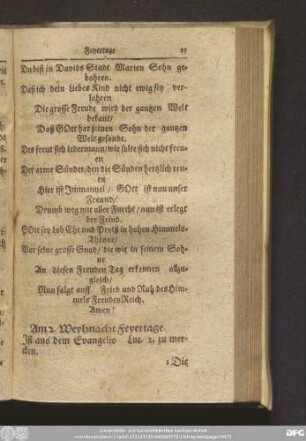 Feyertage
Du bist in Davids Stadt Marien Sohn ge-
bohren.
Daß ich dein liebes Kind nicht ewig sey ver-
lohren
Die grosse Freude wird der gantzen Welt
bekant/
Daß GOtt hat seinen Sohn der gantzen
Welt gesandt.
Des freut sich iedermann/wie solte sich nicht freu-
en
Der arme Sünder/den die Sünden hertzlich reu-
en
Hier ist Immanuel/ GOtt ist nun unser
Freund/
Drumb weg mit aller Furcht/nun ist erlegt
der Feind.
GOtt sey Lob Ehr und Preiß in hohen Himmels-
Throne/
Vor seine grosse Gnad/die wir in seinem Soh-
ne
An diesen Freuden Tag erkennen allzu-
gleich/
Nun folgt auff Fried und Ruh des Him-
mels Freuden Reich.
Amen!
Am 2. Weyhnacht Feyertage.
Ist aus dem Evangelio Luc. 2. zu mer-
cken.
1. Die
DFG